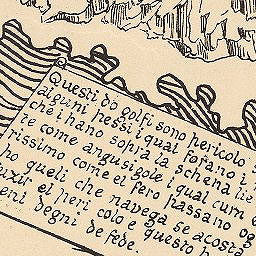 Questi dò golfi sono pericolo
alguni pessi i qual forano i
che i hano sopra la schena lie
re come angusigole i qual cum
rissimo come el fero passano og
no queli che navega se acosta
el peri colo e questo
eni degni de fede.